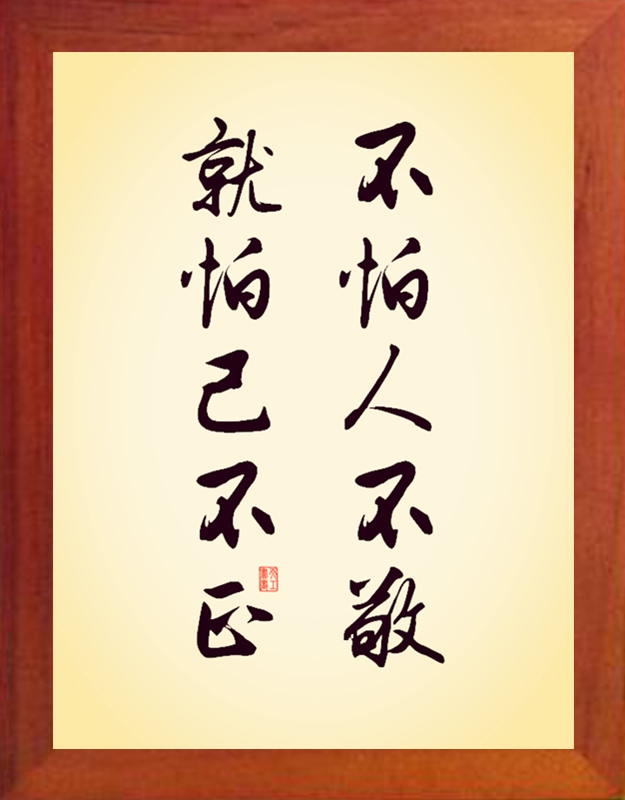 不怕人不敬
就怕己不正